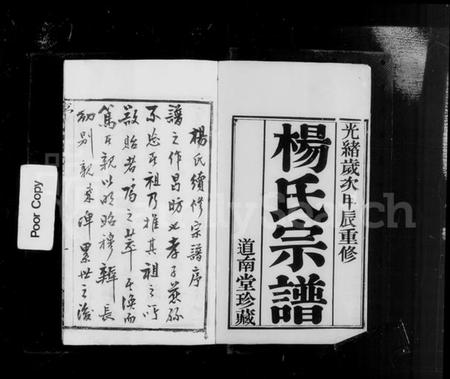 光緒歲次甲辰重修
楊氏宗譜
道南堂珍藏
楊氏續修宗譜序
譜之作昌昉乎孝子慈孫
不忘其祖乃推其祖之所
散貽者而
篤其親以明昭穆辨長
幼別親疎俾累世之後
Poor Copy